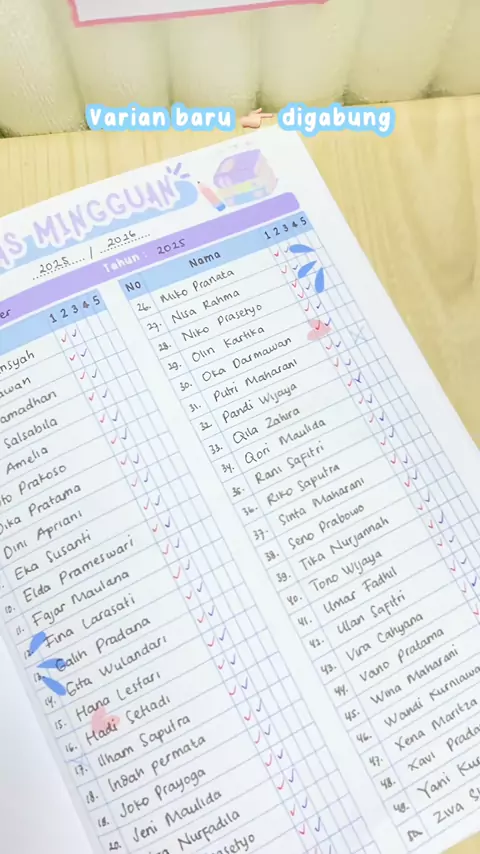 Varian baru digabung
AS MINGGUAN
2025 / 2026
Tahun : 2025
1 2 3 4 5
Salsabila
Amelia
Prakoso
Pratama
Dini Apriani
Eka Susanti
10. Elda Prameswari
11. Fajar Maulana
12. Fina Larasati
13. Galih Pradana
14. Gita Wulandari
15. Hana Lestari
16. Hadi Setiadi
17. Ilham Saputra
18. Indah permata
Joko Prayoga
20. Jeni Maulida
Nurfadila
No Nama 1 2 3 4 5
26. Miko Pranata
27. Nisa Rahma
28. Niko Prasetyo
29. Olin Kartika
30. Oka Darmawan
31. Putri Maharani
32. Pandi Wijaya
33. Qila Zahira
34. Qori Maulida
35. Rani Safitri
36. Riko Saputra
37. Sinta Maharani
38. Seno Prabowo
39. Tika Nurjannah
40. Tono Wijaya
41. Umar Fadhil
42. Ulan Safitri
43. Vira Cahyana
44. Vano Pratama
45. Wina Maharani
46. Wandi Kurniawa
47. Xena Maritza
48. Xavi Prada
49. Yani Kur
50 Ziva S